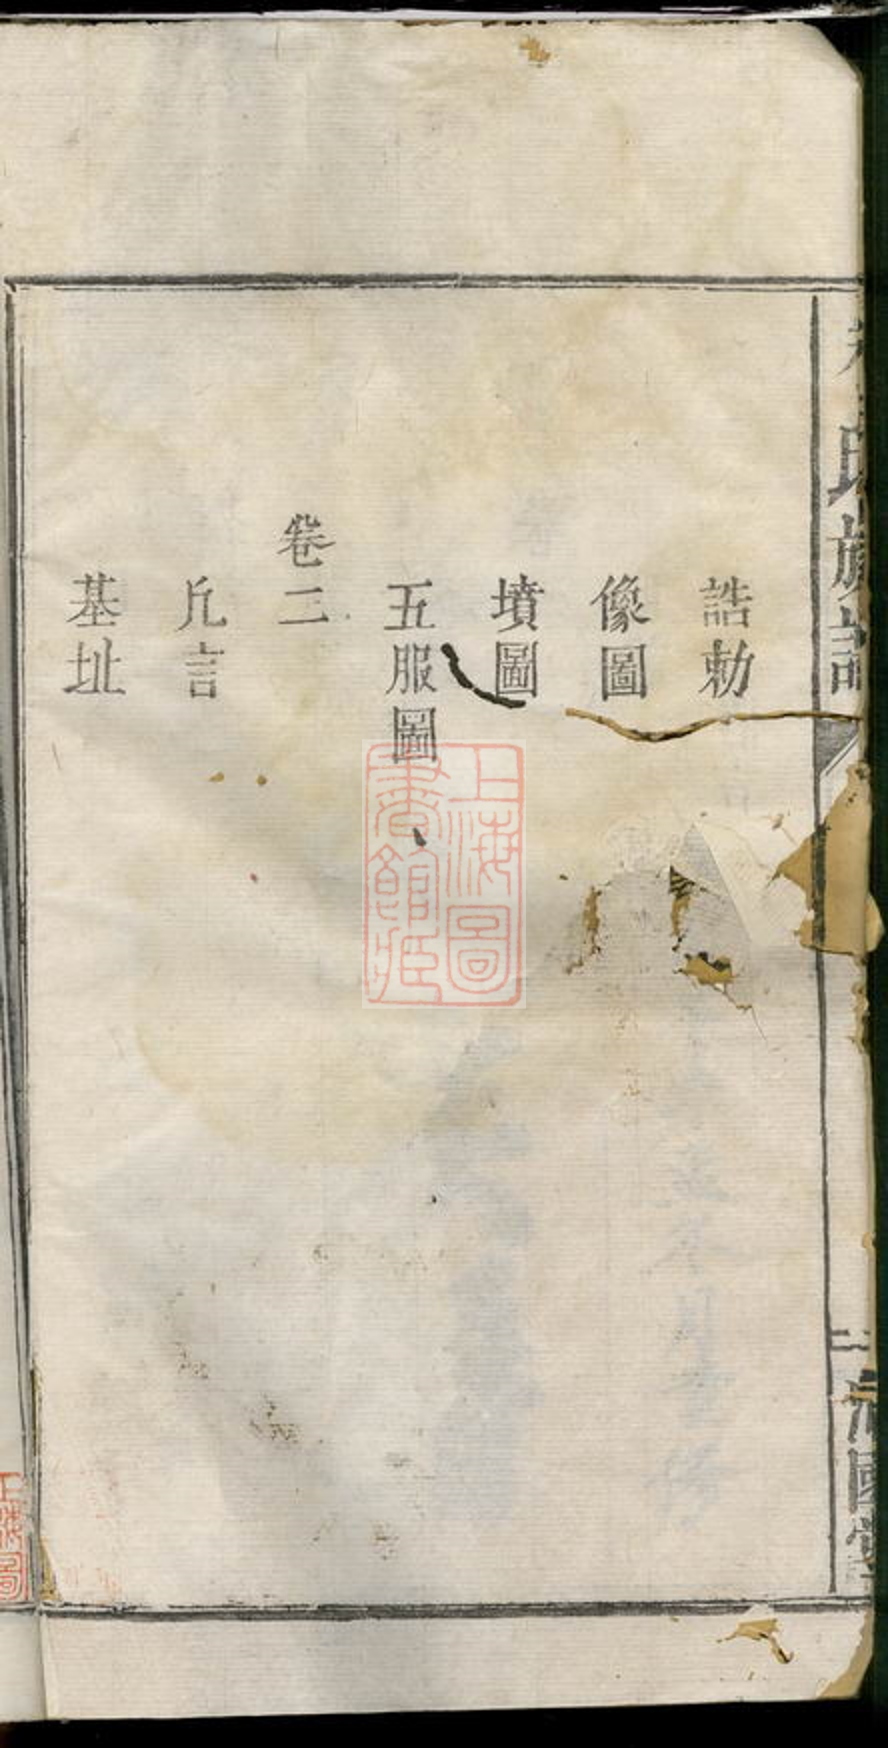 誥勅
像圖
墳圖
五服圖
卷二
凢言
基址
氏族譜
二
國堂
上海圖書館藏
上海圖